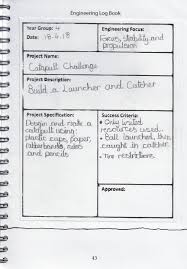 Engineering Log Book
Year Group: 4
Date: 18.4.18
Engineering Focus:
Forces, stability and
propulsion
Project Name:
Catapult Challenge
Project Description:
Build a Launcher and Catcher
Project Specification:
Design and make a
catapult using
plastic cups, paper,
rubberbands, rules
and pencils
Success Criteria:
• Only listed
resources used.
• Ball launched, then
caught in catcher
• Time restrictions.
Approved:
43